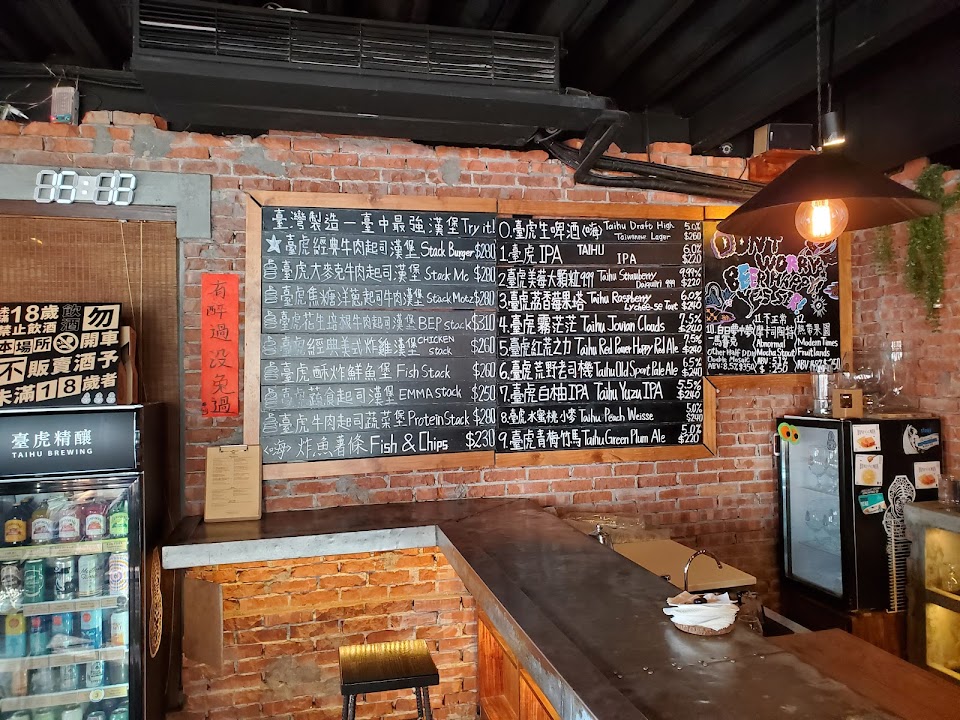 05:08
臺灣製造 臺中最強漢堡Try it!
★臺虎經典牛肉起司漢堡 Stack Burger $280
臺虎大麥克牛肉起司漢堡 Stack Mc $280
臺虎焦糖洋蔥起司牛肉漢堡 Stack Motz $280
臺虎花生培根牛肉起司漢堡 BEP stack $310
臺虎經典美式炸雞漢堡 CHICKEN Stack $260
臺虎酥炸鮮魚堡 Fish Stack $260
臺虎蔬食起司漢堡 EMMA Stack $250
臺虎牛肉起司蔬菜堡 Protein Stack $280
(嗨) 炸魚薯條 Fish & Chips $230
0.臺虎生啤酒(嗨) Taihu Draft High Taiwanese Lager 5.0% $260
1.臺虎 IPA TAIHU IPA 6.0% $220
2.臺虎美莓大顆粒999 Taihu Strawberry Daiquiri 999 9.99% $220
3.臺虎荔香莓果塔 Taihu Raspberry Lychee-see Tart 6.0% $240
4.臺虎霧茫茫 Taihu Jovian Clouds 7.5% $240
5.臺虎紅荒之力 Taihu Red Power Happy Red Ale 7.5% $240
6.臺虎荒野老司機 Taihu Old Sport Pale Ale 6.5% $240
7.臺虎白柚IPA Taihu Yuzu IPA 5.5% $240
8.臺虎水蜜桃小麥 Taihu Peach Weisse 5.0% $240
9.臺虎青梅竹馬 Taihu Green Plum Ale 5.0% $220
DON'T WORRY
BEER HAPPY
YES SIR!
Other Half DDH
Double Mosaic
ABV: 8.5% $350
Abnormal
Mocha Stout
Modern Times
Fruitlands
有醉過没兔過
18歲
禁止飲酒
飲酒勿
開車
本場所
不販賣酒予
未滿18歲者
臺虎精釀
TAIHU BREWING